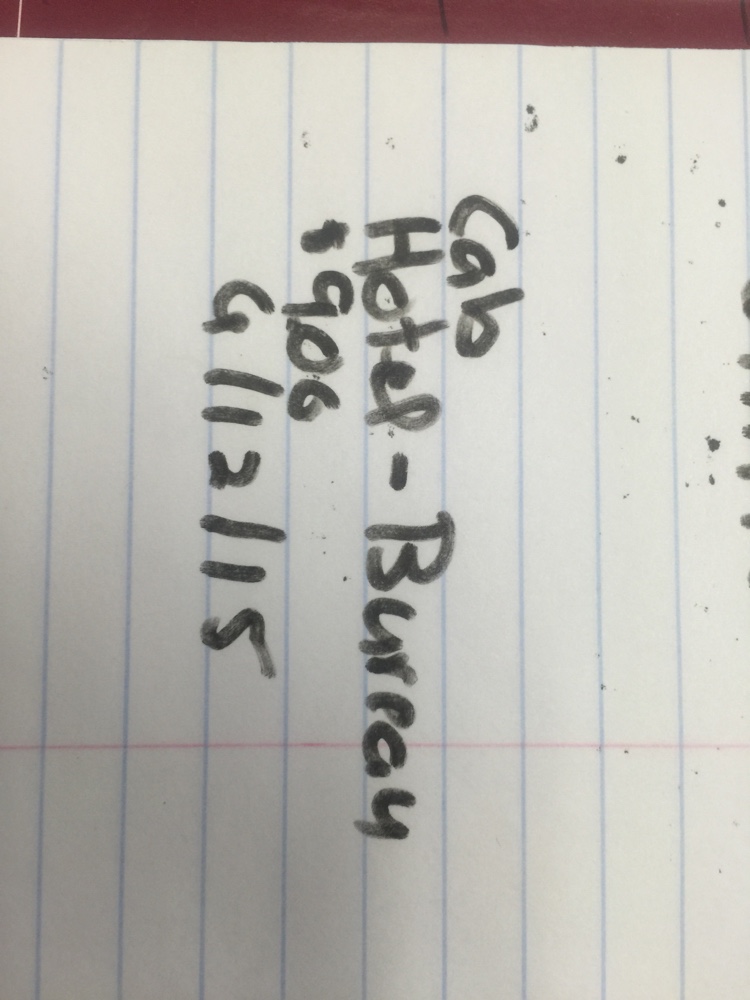 Cab
Hotel - Burray
$906
9/12/15